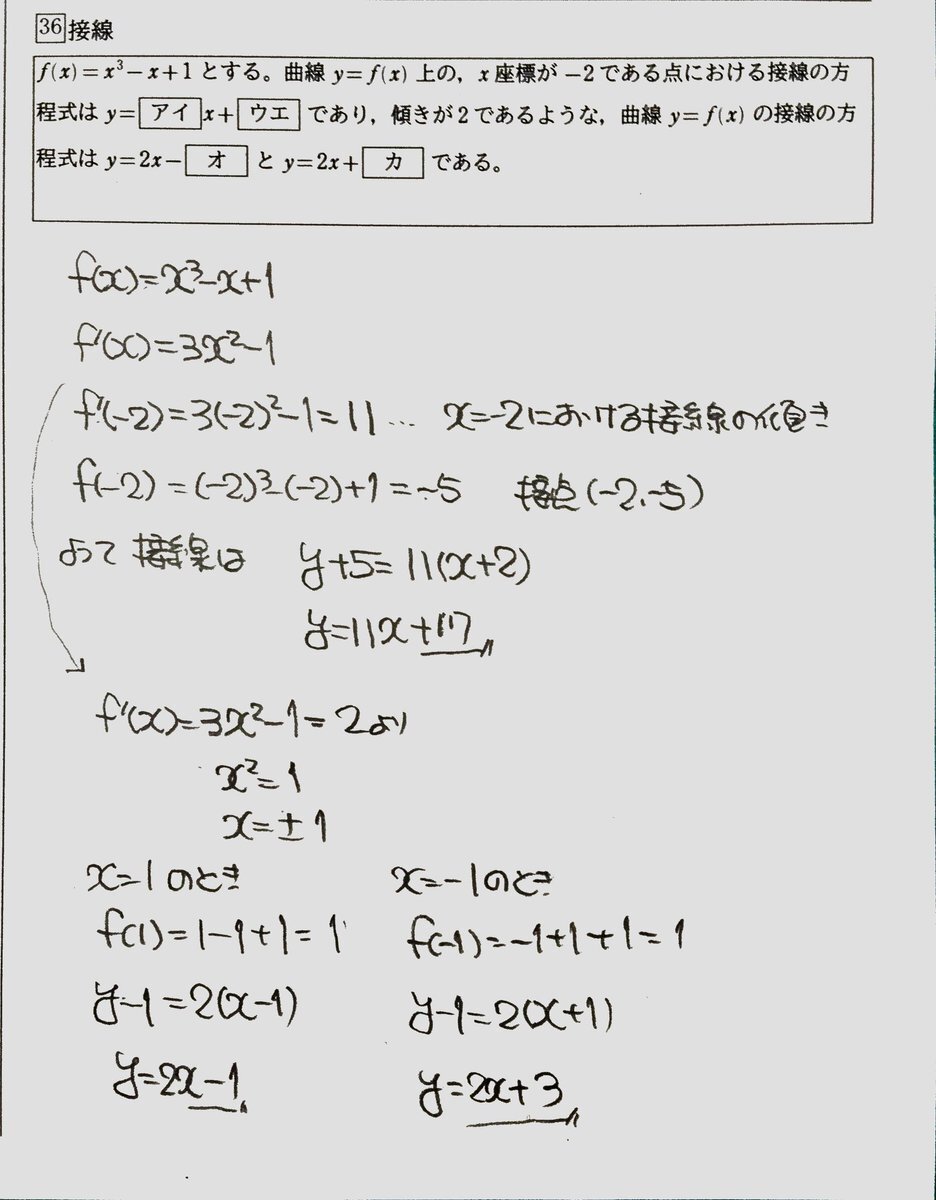 36 接線
f(x)=x³−x+1 とする。曲線 y=f(x) 上の，x 座標が −2 である点における接線の方
程式は y= アイ x+ ウエ であり，傾きが 2 であるような，曲線 y=f(x) の接線の方
程式は y=2x− オ と y=2x+ カ である。
f(x)=x³−x+1
f'(x)=3x²−1
f'(−2)=3(−2)²−1=11 … x=−2における接線の傾き
f(−2)=(−2)³−(−2)+1=−5 接点(−2,−5)
よって 接線は y+5=11(x+2)
y=11x+17
f'(x)=3x²−1=2より
x²=1
x=±1
x=1のとき x=−1のとき
f(1)=1−1+1=1 f(−1)=−1+1+1=1
y−1=2(x−1) y−1=2(x+1)
y=2x−1 y=2x+3